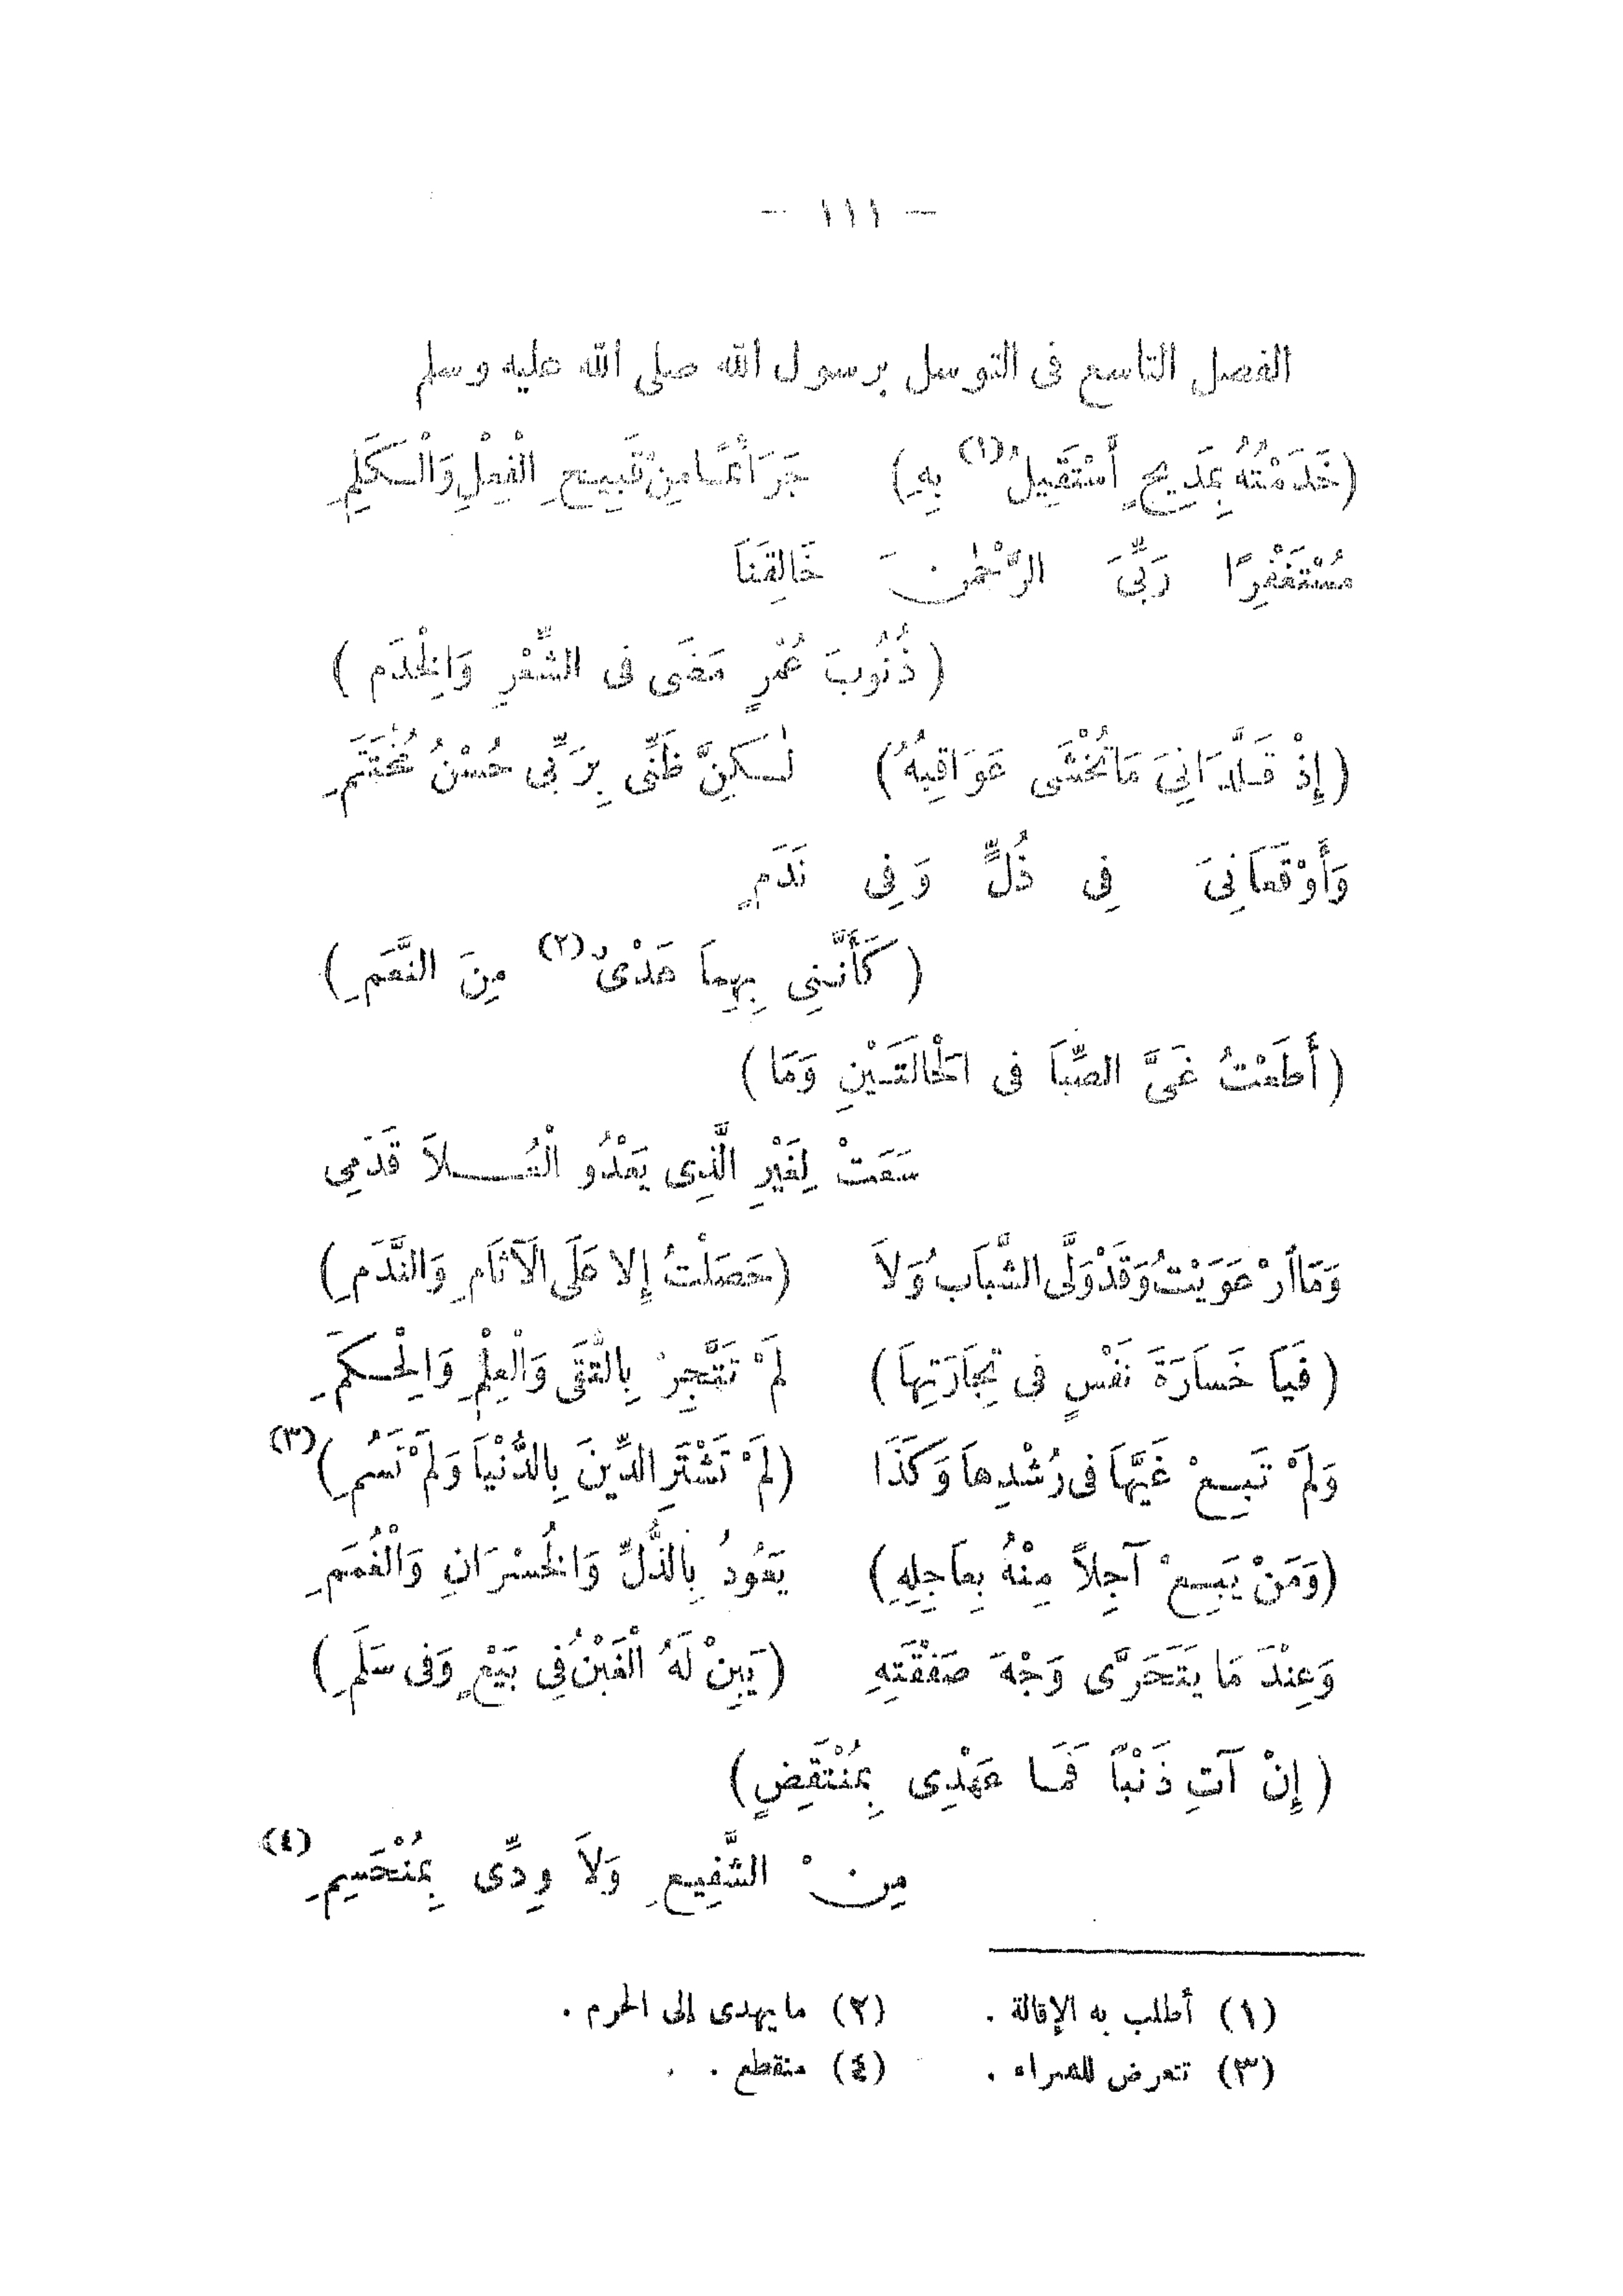 — ١١١ —
الفصل التاسع فى التوسل برسول الله صلى الله عليه وسلم
(خَدَمْتُهُ بِمَدِيحٍ أَسْتَقِيلُ (١) بِهِ) جَرَائِمًا مِنْ قَبِيحِ الْفِعْلِ وَالْكَلِمِ
مُسْتَغْفِرًا رَبِّىَ الرَّحْمٰنَ خَالِقَنَا
(ذُنُوبَ عُمْرٍ مَضَى فى الشِّعْرِ وَالْخِدَمِ)
(إِذْ قَلَّدَانِىَ مَا تُخْشَى عَوَاقِبُهُ) لٰكِنَّ ظَنِّى بِرَبِّى حُسْنُ مُخْتَتَمِ
وَأَوْقَعَانِىَ فِى ذُلٍّ وَفِى نَدَمٍ
(كَأَنَّنِى بِهِمَا هَدْىٌ (٢) مِنَ النَّعَمِ)
(أَطَعْتُ غَىَّ الصِّبَا فى الْحَالَتَيْنِ وَمَا)
سَعَتْ لِغَيْرِ الَّذِى يَعْدُو الْعُلاَ قَدَمِى
وَمَا ارْعَوَيْتُ وَقَدْ وَلَّى الشَّبَابُ وَلاَ (حَصَلْتُ إِلا عَلَى الْآثَامِ وَالنَّدَمِ)
(فَيَا خَسَارَةَ نَفْسٍ فى تِجَارَتِهَا) لَمْ تَتَّجِرْ بِالتُّقَى وَالْعِلْمِ وَالْحِكَمِ
وَلَمْ تَبِعْ غَيَّهَا فى رُشْدِهَا وَكَذَا (لَمْ تَشْتَرِ الدِّينَ بِالدُّنْيَا وَلَمْ تَسُمِ) (٣)
(وَمَنْ يَبِعْ آجِلاً مِنْهُ بِعَاجِلِهِ) يَعُودُ بِالذُّلِّ وَالْخُسْرَانِ وَالْغُمَمِ
وَعِنْدَ مَا يَتَحَرَّى وَجْهَ صَفْقَتِهِ (يَبِنْ لَهُ الْغَبْنُ فِى بَيْعٍ وَفى سَلَمِ)
(إِنْ آتِ ذَنْبًا فَمَا عَهْدِى بِمُنْتَقِضٍ)
مِنْ الشَّفِيعِ وَلاَ وِدِّى بِمُنْحَسِمِ (٤)
(١) أطلب به الإقالة . (٢) ما يهدى إلى الحرم .
(٣) تتعرض للشراء . (٤) منقطع .